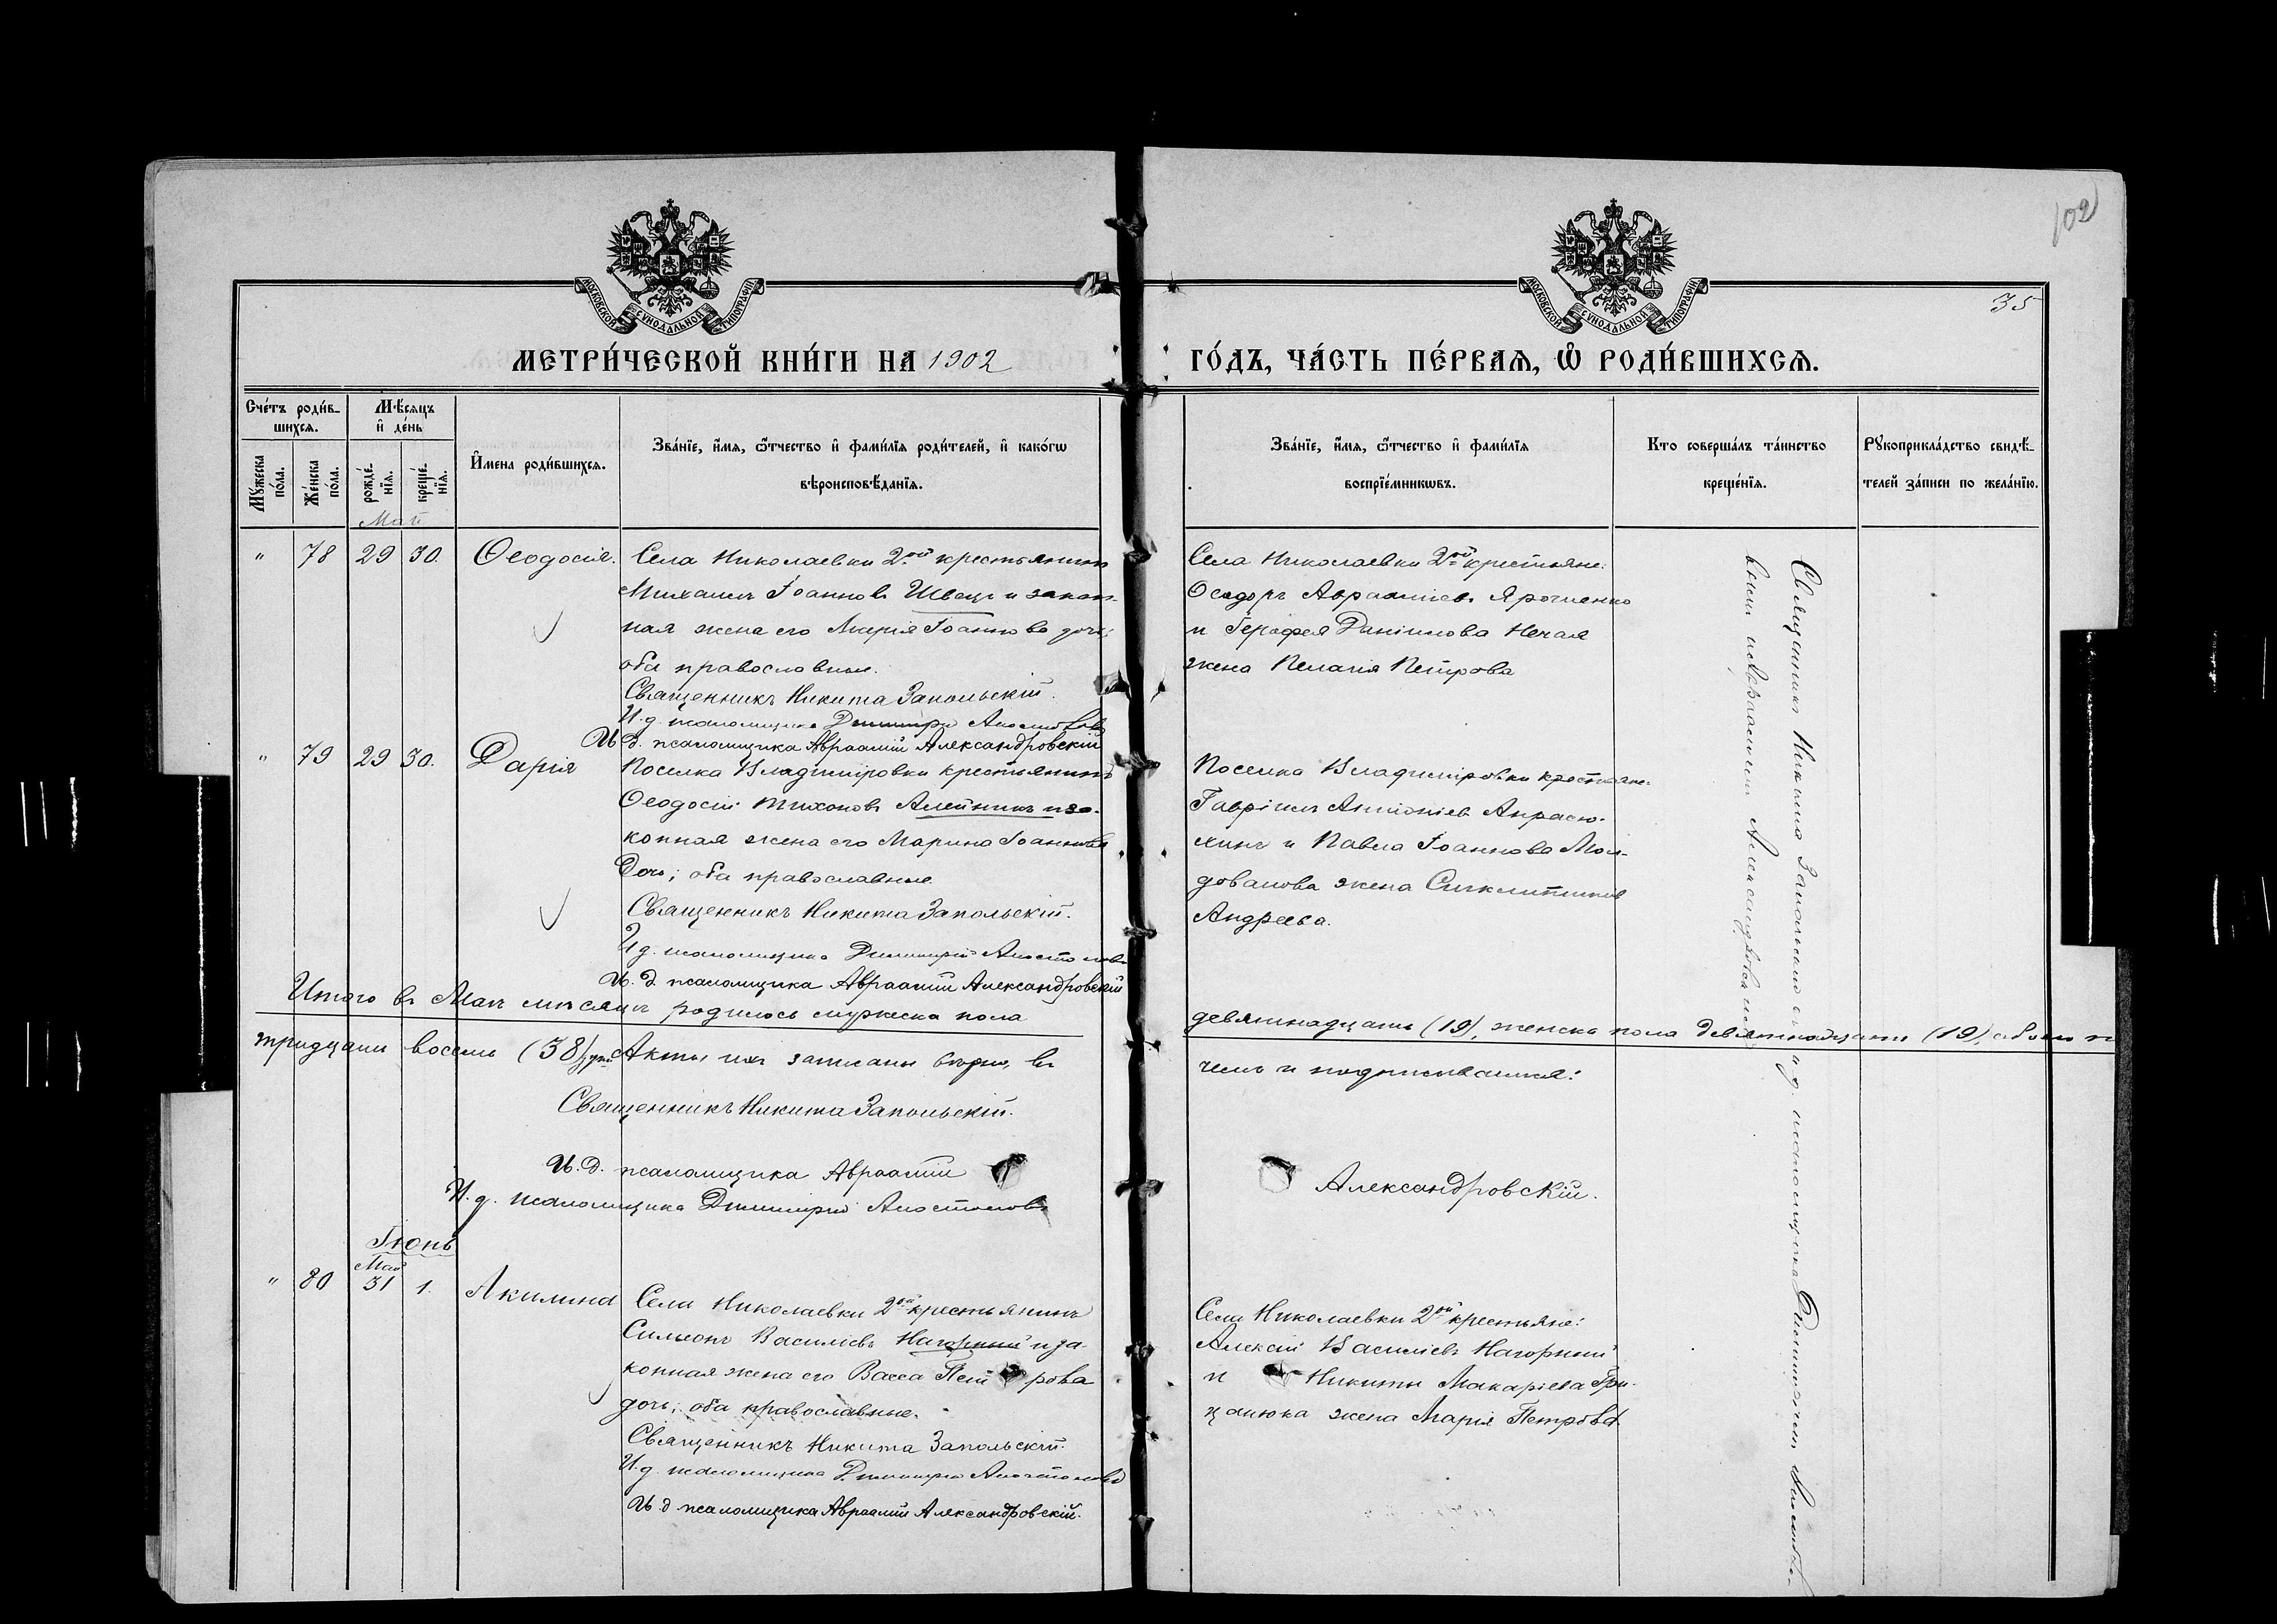 102
35
МОСКОВСКОЙ СѴНОДАЛЬНОЙ ТИПОГРАФІИ
МОСКОВСКОЙ СѴНОДАЛЬНОЙ ТИПОГРАФІИ
МЕТРИ́ЧЕСКОЙ КНИ́ГИ НА 1902
ГО́ДЪ, ЧА́СТЬ ПЕ́РВАѦ, Ѽ РОДИ́ВШИХСѦ.
Сче́тъ роди́в-
шихсѧ.
Мѣ́сѧцъ
и҆ де́нь
Мꙋ́жеска
по́ла.
Же́нска
по́ла.
рожде́-
нїѧ.
креще́-
нїѧ.
И҆мена роди́вшихсѧ.
Зва́нїе, и҆́мѧ, ѻ҆́тчество и҆ фами́лїѧ роди́телей, и҆ како́гѡ
вѣроисповѣ́данїѧ.
Зва́нїе, и҆́мѧ, ѻ҆́тчество и҆ фами́лїѧ
воспрїе́мникѡвъ.
Кто соверша́лъ та́инство
креще́нїѧ.
Рꙋкоприкла́дство свидѣ́-
телей за́писи по жела́нїю.
Май
" 78 29 30. Ѳеодосія.
Села Николаевки 2ой крестьянинъ
Михаилъ Іоанновъ Швецъ и закон-
ная жена его Марія Іоаннова дочь;
оба православные.
Священникъ Никита Запольскій.
И. д. псаломщика Димитрій Апостоловъ
И. д. псаломщика Авраамій Александровскій
Села Николаевки 2ой крестьяне:
Ѳеодоръ Авраамiевъ
и Іерофея Даніилова Нечая
жена Пелагія Петрова
" 79 29 30. Дарія
Поселка Владимiровки крестьянинъ
Ѳеодосій Тихоновъ Алейникъ и за-
конная жена его Марина Іоаннова
дочь; оба православные.
Священникъ Никита Запольскій.
И. д. псаломщика Димитрій Апостоловъ
И. д. псаломщика Авраамій Александровскій
Поселка Владимiровки крестьяне:
Гавріилъ Антоніевъ
и Павла Іоаннова Мол-
дованова жена
Андреева.
Священникъ Никита Запольскій съ и. д. псаломщика Димитріемъ Апостоловы-
Авраамiемъ Александровскимъ
Итого въ Маѣ мѣсяцѣ родилось мужеска пола
девятнадцать (19), женска пола девятнадцать (19), обоего п
тридцать восемь (38) душъ Акты сіи записаны вѣрно, въ
чемъ и подписываемся:
Священникъ Никита Запольскій.
И. д. псаломщика Авраамій
Александровскій.
И. д. псаломщика Димитрій Апостоловъ
Іюнь
Май
" 80 31 1. Акилина
Села Николаевки 2ой крестьянинъ
Симеонъ Василіевъ Нагорный и за-
конная жена его Васса Петрова
дочь; оба православные.
Священникъ Никита Запольскій.
И. д. псаломщика Димитрій Апостоловъ
И. д. псаломщика Авраамій Александровскій.
Села Николаевки 2ой крестьяне:
Алексій Василіевъ Нагорный
и Никиты Макаріева Гри-
цанюка жена Марія Петрова